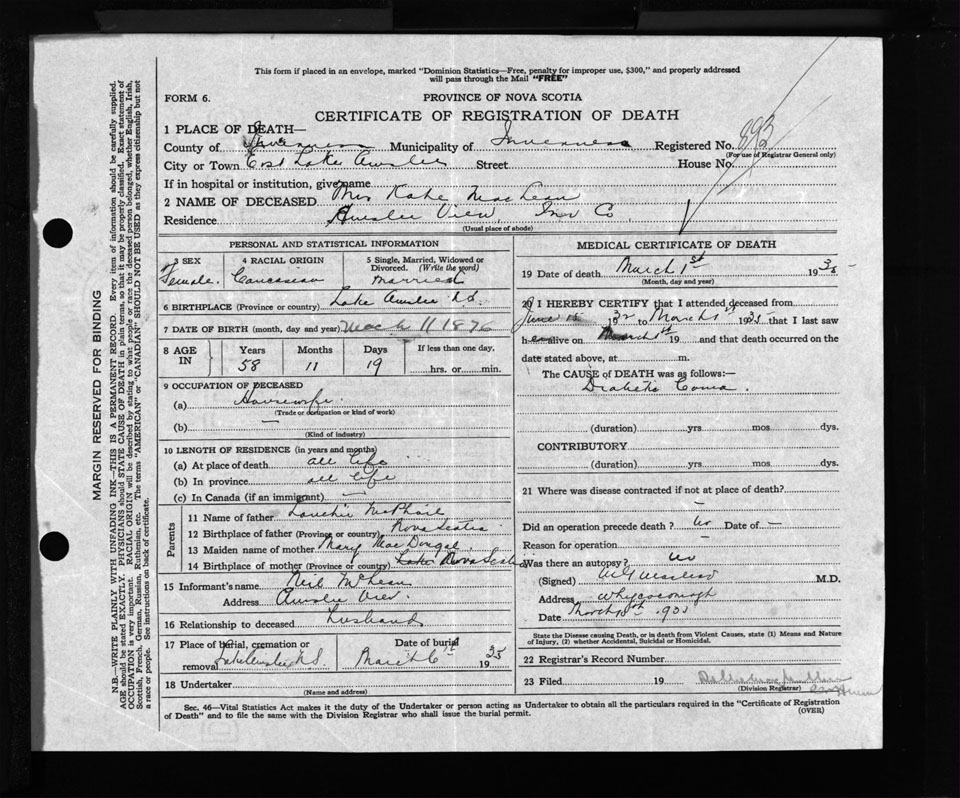 This form if placed in an envelope, marked "Dominion Statistics—Free, penalty for improper use, $300," and properly addressed
will pass through the Mail "FREE"
FORM 6.
PROVINCE OF NOVA SCOTIA
CERTIFICATE OF REGISTRATION OF DEATH
1 PLACE OF DEATH—
County of Inverness Municipality of Inverness Registered No. 893
(For use of Registrar General only)
City or Town East Lake Ainslie Street House No.
If in hospital or institution, give name
2 NAME OF DECEASED Mrs Kate MacLean
Residence Ainslie View, Inv Co
(Usual place of abode)
PERSONAL AND STATISTICAL INFORMATION
3 SEX Female
4 RACIAL ORIGIN Caucasian
5 Single, Married, Widowed or Divorced. (Write the word) Married
6 BIRTHPLACE (Province or country) Lake Ainslie N.S.
7 DATE OF BIRTH (month, day and year) March 11 1876
8 AGE IN Years 58 Months 11 Days 19 If less than one day, hrs. or min.
9 OCCUPATION OF DECEASED
(a) Housewife
(Trade or occupation or kind of work)
(b) —
(Kind of industry)
10 LENGTH OF RESIDENCE (in years and months)
(a) At place of death all life
(b) In province all life
(c) In Canada (if an immigrant) —
Parents
11 Name of father Lauchie McPhail
12 Birthplace of father (Province or country) Nova Scotia
13 Maiden name of mother Mary MacDougal
14 Birthplace of mother (Province or country) Lake Nova Scotia
15 Informant's name Neil McLean
Address Ainslie View.
16 Relationship to deceased husband
17 Place of burial, cremation or removal Lake Ainslie N S Date of burial March 6th 1935
18 Undertaker
(Name and address)
MEDICAL CERTIFICATE OF DEATH
19 Date of death March 1st 1935
(Month, day and year)
20 I HEREBY CERTIFY that I attended deceased from
June 15 1932 to March 1st 1935 that I last saw
h er alive on March 1st 19 and that death occurred on the
date stated above, at m.
The CAUSE of DEATH was as follows:—
Diabetic Coma.
(duration) yrs mos dys.
CONTRIBUTORY
(duration) yrs mos dys.
21 Where was disease contracted if not at place of death?
—
Did an operation precede death? No Date of —
Reason for operation —
Was there an autopsy? No
(Signed) M.D.
Address Whycocomagh
Date March 1935
State the Disease causing Death, or in death from Violent Causes, state (1) Means and Nature
of Injury, (2) whether Accidental, Suicidal or Homicidal.
22 Registrar's Record Number
23 Filed 19
(Division Registrar)
Sec. 46—Vital Statistics Act makes it the duty of the Undertaker or person acting as Undertaker to obtain all the particulars required in the "Certificate of Registration
of Death" and to file the same with the Division Registrar who shall issue the burial permit.
(OVER)
MARGIN RESERVED FOR BINDING
N.B.—WRITE PLAINLY WITH UNFADING INK—THIS IS A PERMANENT RECORD. Every item of information should be carefully supplied.
AGE should be stated EXACTLY. PHYSICIANS should STATE CAUSE OF DEATH in plain terms, so that it may be properly classified. Exact statement of
OCCUPATION is very important. RACIAL ORIGIN will be described by stating to what people or race the deceased person belonged, whether English, Irish,
Scottish, French, German, Russian, Ruthenian, etc. The terms "AMERICAN" or "CANADIAN" SHOULD NOT BE USED as they express citizenship but not
a race or people. See instructions on back of certificate.